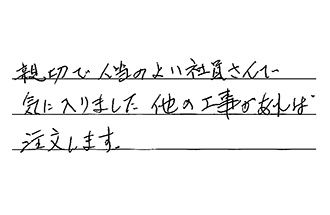 親切で人当のよい社員さんで
気に入りました 他の工事があれば
注文します。